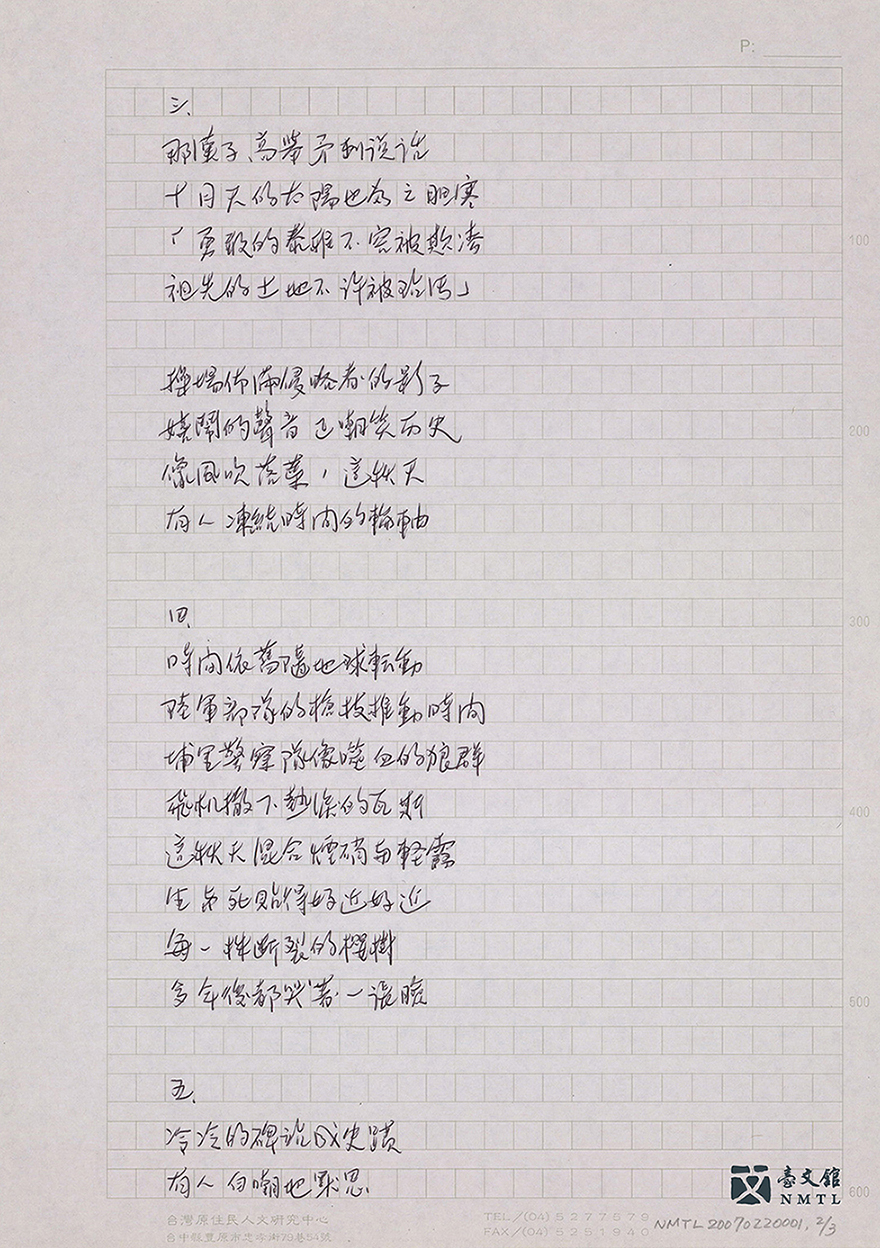 P:
三、
那漢子、高舉矛刺說話
十月天的太陽也為之胆寒
「勇敢的泰雅不容被欺凌
祖先的土地不許被玷污」
操場佈滿侵略者的影子
嬉鬧的聲音正嘲笑历史
像風吹落葉，這秋天
有人凍結時間的輪軸
四、
時間依舊隨地球転動
陸軍部隊的槍枝推動時間
埔里警察隊像噬血的狼群
飛机撒下熱淚的瓦斯
這秋天混合煙硝与輕霧
生与死貼得好近好近
每一株断裂的櫻樹
多年後都哭著一張臉
五、
冷冷的碑站成史蹟
有人自嘲地默思
100
200
300
400
500
600
臺文館
NMTL
台灣原住民人文研究中心
台中縣豐原市忠孝街79巷54號
TEL／(04)5277579
FAX／(04)5251940
NMTL20070220001, 2/3